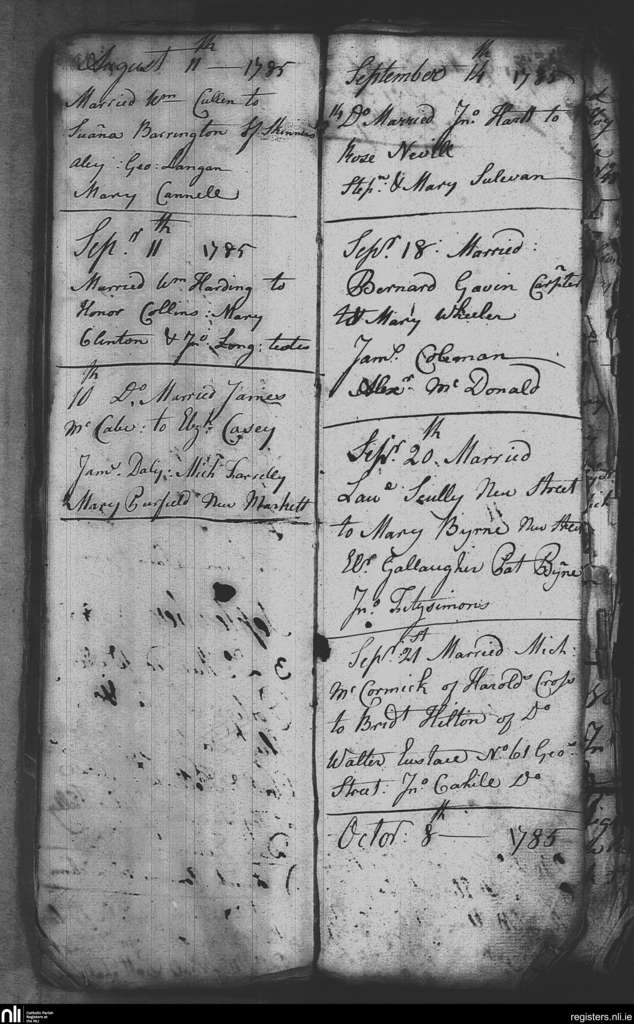 August 11th — 1785
Married Wm Cullen to
Suana Barrington of Skinners
aley : Geo: Langan
Mary Cannell
Sepr. 11th 1785
Married Wm Harding to
Honor Collins : Mary
Clinton & Jno. Long : testes
10th Do. Married James
Mc Cabe : to Elizth. Casey
Jams. Daly : Mich Farrelly
Mary New Markett
September 14th 1785
14 Do Married Jno. Hartt to
Rose Nevill
Stepn. & Mary Sulevan
Sepr. 18. Married :
Bernard Gavin Carpnter
to Mary Wheeler
Jams. Coleman
Alexr. Mc Donald
Sepr. 20th. Married
Lawe. Scully New Street
to Mary Byrne New Street
Elr. Gallaugher Pat Byrne
Jno. Fitzsimons
Sepr. 21st Married Mich :
Mc Cormick of Harolds Cross
to Bridt Hilton of Do
Walter Eustace No. 61 Geos.
Street : Jno. Cahile Do
Octor. 8th — 1785
nli
Catholic Parish
Registers at
the NLI
registers.nli.ie